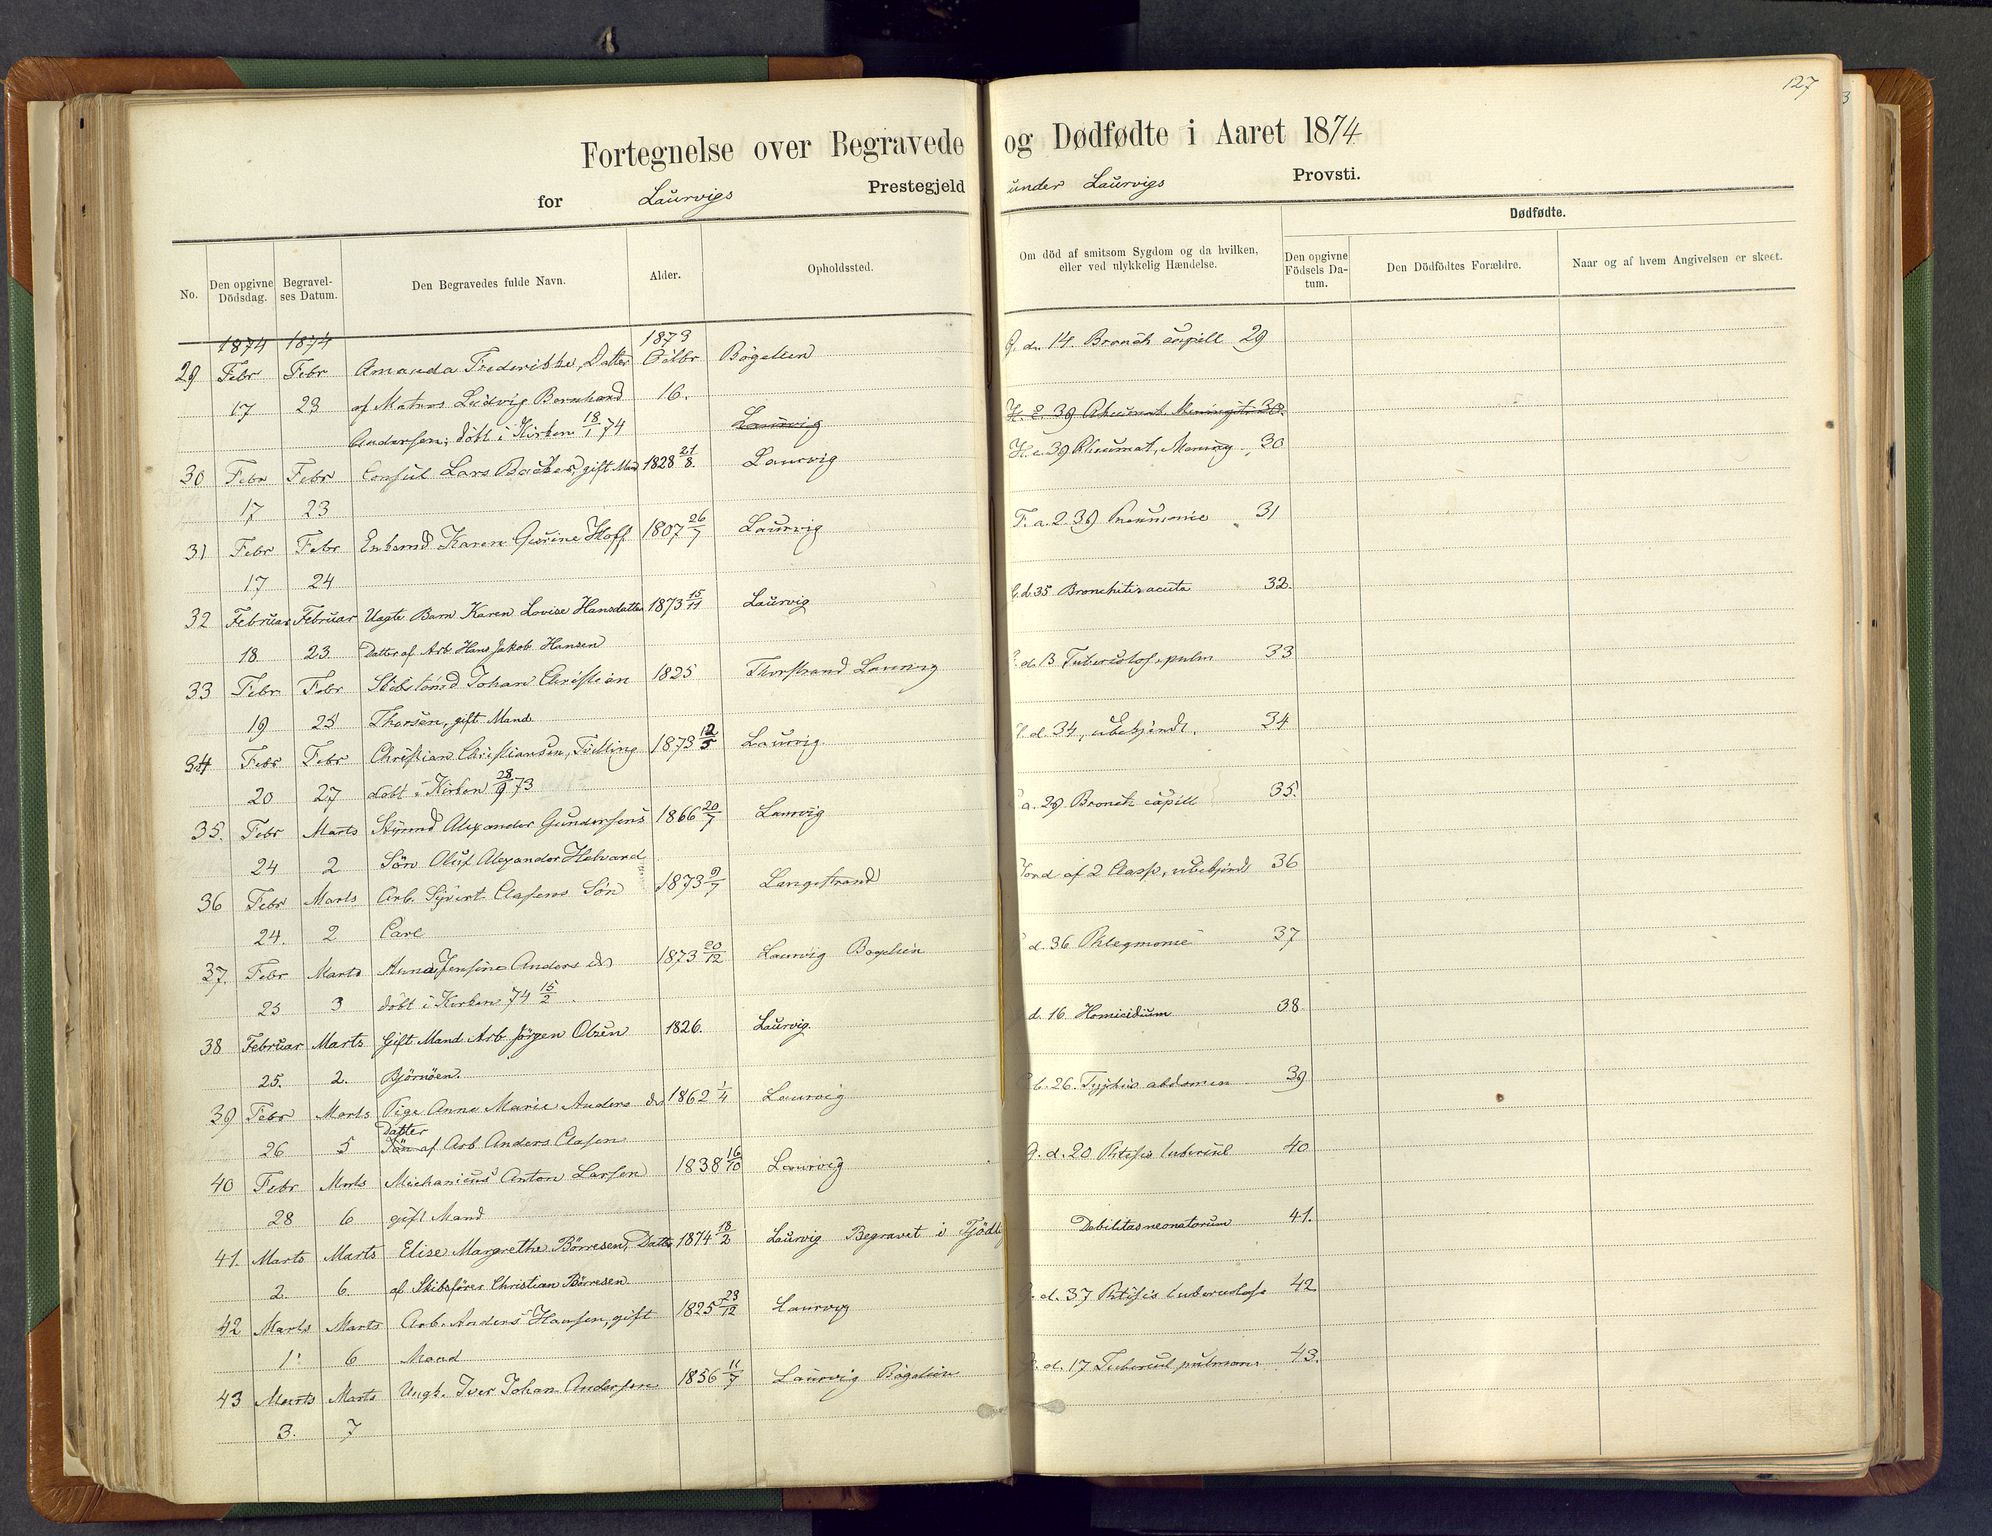 127
3
Fortegnelse over Begravede og Dødfødte i Aaret 1874
for Laurvigs Prestegjeld under Laurvigs Provsti.
No.
Den opgivne Dödsdag.
Begravelses Datum.
Den Begravedes fulde Navn.
Alder.
Opholdssted.
Om död af smitsom Sygdom og da hvilken, eller ved ulykkelig Hændelse.
Dødfødte.
Den opgivne Födsels Datum.
Den Dödfödtes Forældre.
Naar og af hvem Angivelsen er skeet.
1874 1874 1873
29 Febr Febr Amanda Frederikke, Datter Octbr Bögelien G. d. 14 Bronch capill 29
17 23 af Matros Ludvig Bernhard 16.
Andersen, döbt i Kirken 18/1 74 Laurvig H. c. 39 Rheumat. Meningit 30.
30 Febr Febr Consul Lars Backer, gift Mand 1828 21/8. Laurvig H. c. 39 Rheumat, Mening 30
17 23
31 Febr Febr Enkemd Karen Gurine Hoff 1807 26/7 Laurvig F. a. 2. 39 Pneumonie 31
17 24
32 Februar Februar Uægte Barn Karen Lovise Hansdatter 1873 15/11 Laurvig d. 35 Bronchitis acuta 32.
18 23 Datter af Arb Hans Jakob Hansen
33 Febr Febr Skibstømd Johan Christian 1825 Thorstrand Laurvig d. 13 Tuberculos. pulm 33
19 25 Thorsen, gift Mand
34 Febr Febr Christian Christiansen, Tvilling 1873 12/5 Laurvig d. 34, ubekjendt. 34
20 27 döbt i Kirken 28/9 73
35. Febr Marts Styrmd Alexander Gundersens 1866 20/7 Laurvig a. 29 Bronch capill 35.
24 2 Sön Oluf Alexander Helvard
36 Febr Marts Arb. Syvert Clasens Sön 1873 9/7 Langestrand af 2 Clasp, ubekjendt 36
24. 2 Carl
37. Febr Marts Anna Jensine Anders da 1873 20/12 Laurvig Bøgelien d. 36 Phlegmonie 37
25 3 döbt i Kirken 74 15/2
38 Februar Marts Gift Mand Arb Jörgen Olsen 1826. Laurvig. d. 16 Homicidium 38
25. 2. Bjørnøen.
39 Febr Marts Pige Anne Marie Anders da 1862 1/4 Laurvig b. 26. Typhus abdomen 39
Datter
26 5 Sön af Arb Anders Clasen
40 Febr Marts Mechanicus Anton Larsen 1838 16/10 Laurvig G. d. 20 Phtisis tubercul 40
28 6 gift Mand
41. Marts Marts Elise Margrethe Børresen, Datter 1874 18/2 Laurvig Begravet i Tjödling Debilitas neonatorum 41.
2. 6. af Skibsfører Christian Børresen
42 Marts Marts Arb. Anders Hansen, gift 1825 23/12 Laurvig d. 37 Phtisis tuberculosa 42
1. 6 Mand
43 Marts Marts Ungk. Iver Johan Andersen 1856 11/7 Laurvig Bögelien d. 17 Tubercul pulmon 43.
3. 7